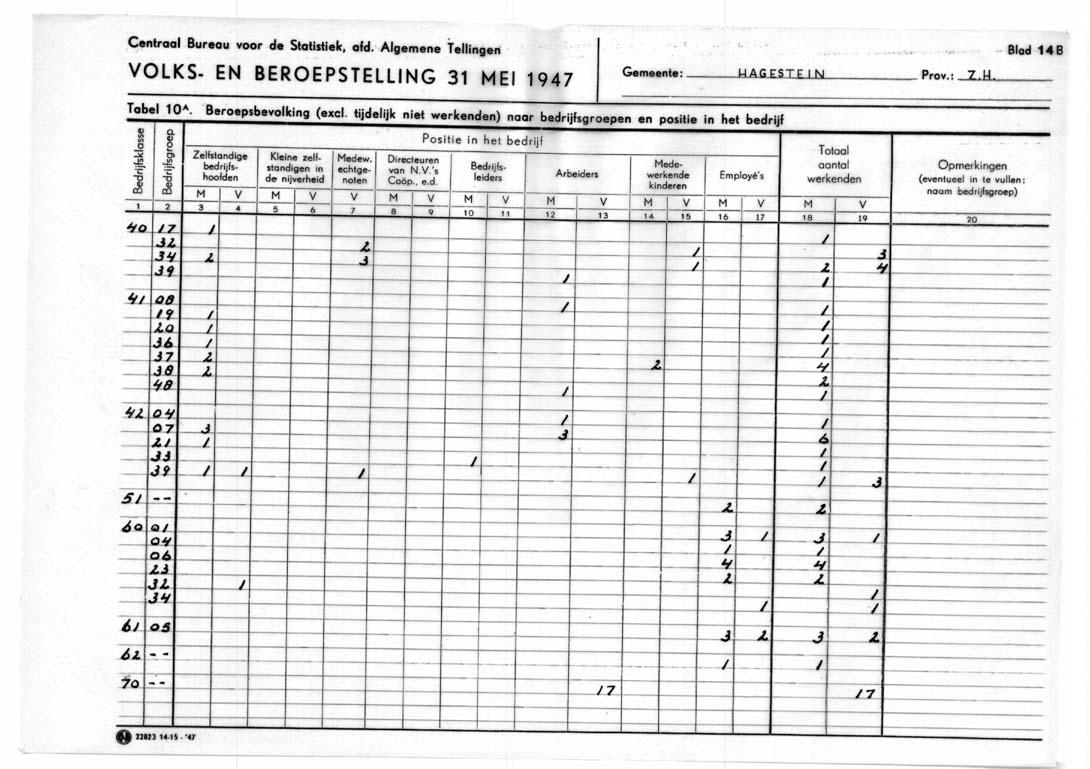 Centraal Bureau voor de Statistiek, afd. Algemene Tellingen
Blad 14B
VOLKS- EN BEROEPSTELLING 31 MEI 1947
Gemeente: HAGESTEIN Prov.: Z.H.
Tabel 10A. Beroepsbevolking (excl. tijdelijk niet werkenden) naar bedrijfsgroepen en positie in het bedrijf
Bedrijfsklasse Bedrijfsgroep Positie in het bedrijf Totaal aantal werkenden Opmerkingen (eventueel in te vullen: naam bedrijfsgroep)
Zelfstandige bedrijfs-hoofden Kleine zelf-standigen in de nijverheid Medew. echtge-noten Directeuren van N.V.'s Coöp., e.d. Bedrijfs-leiders Arbeiders Mede-werkende kinderen Employé's
M V M V V M V M V M V M V M V M V
1 2 3 4 5 6 7 8 9 10 11 12 13 14 15 16 17 18 19 20
40 17 1 1
32 2 1 3
34 2 3 1 2 4
39 1 1
41 08 1 1
19 1 1
20 1 1
36 1 1
37 2 2 4
38 2 2
48 1 1
42 04 1 1
07 3 3 6
21 1 1
33 1 1
39 1 1 1 1 1 3
51 -- 2 2
60 01 3 1 3 1
04 1 1
06 4 4
23 2 2
32 1 1
34 1 1
61 05 3 2 3 2
62 -- 1 1
70 -- 17 17
22823 14-15 - '47